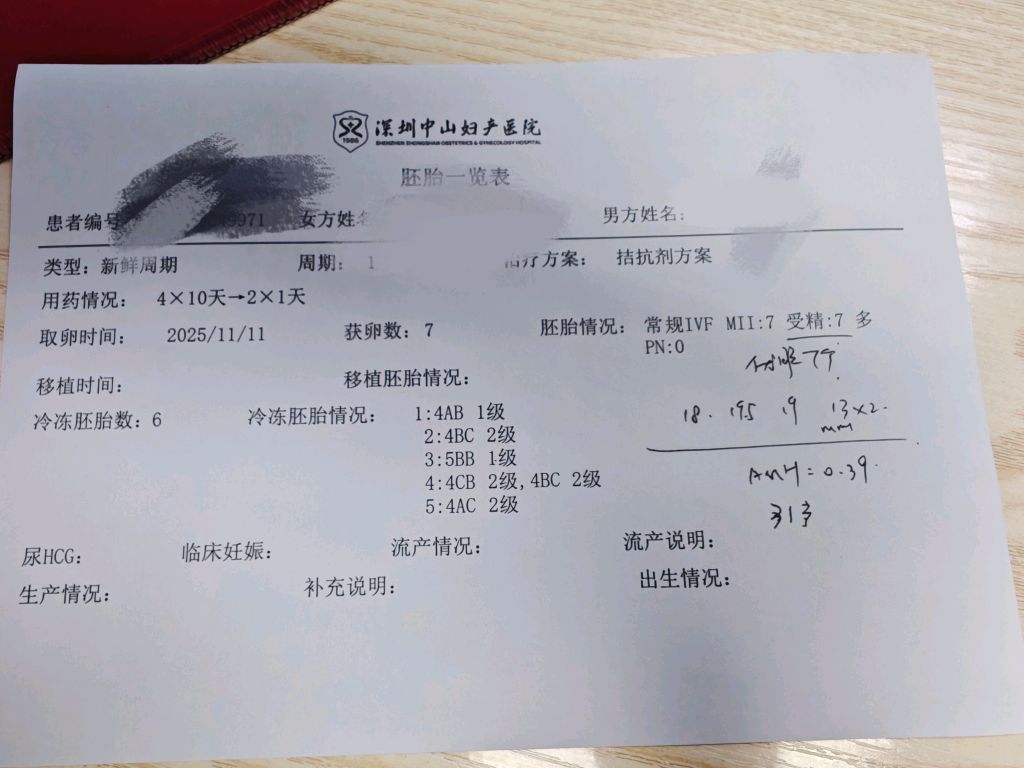 深圳中山妇产医院
SHENZHEN ZHONGSHAN OBSTETRICS & GYNECOLOGY HOSPITAL
1986
胚胎一览表
患者编号 9971 女方姓名 男方姓名:
类型: 新鲜周期 周期: 1 治疗方案: 拮抗剂方案
用药情况: 4×10天→2×1天
取卵时间: 2025/11/11 获卵数: 7 胚胎情况: 常规IVF MII:7 受精:7 多
PN:0
7个
移植时间: 移植胚胎情况:
18. 195 19 13×2.
mm
冷冻胚胎数: 6 冷冻胚胎情况: 1:4AB 1级
2:4BC 2级
3:5BB 1级
4:4CB 2级,4BC 2级
5:4AC 2级
AMH=0.39.
31岁
尿HCG: 临床妊娠: 流产情况: 流产说明:
生产情况: 补充说明: 出生情况: